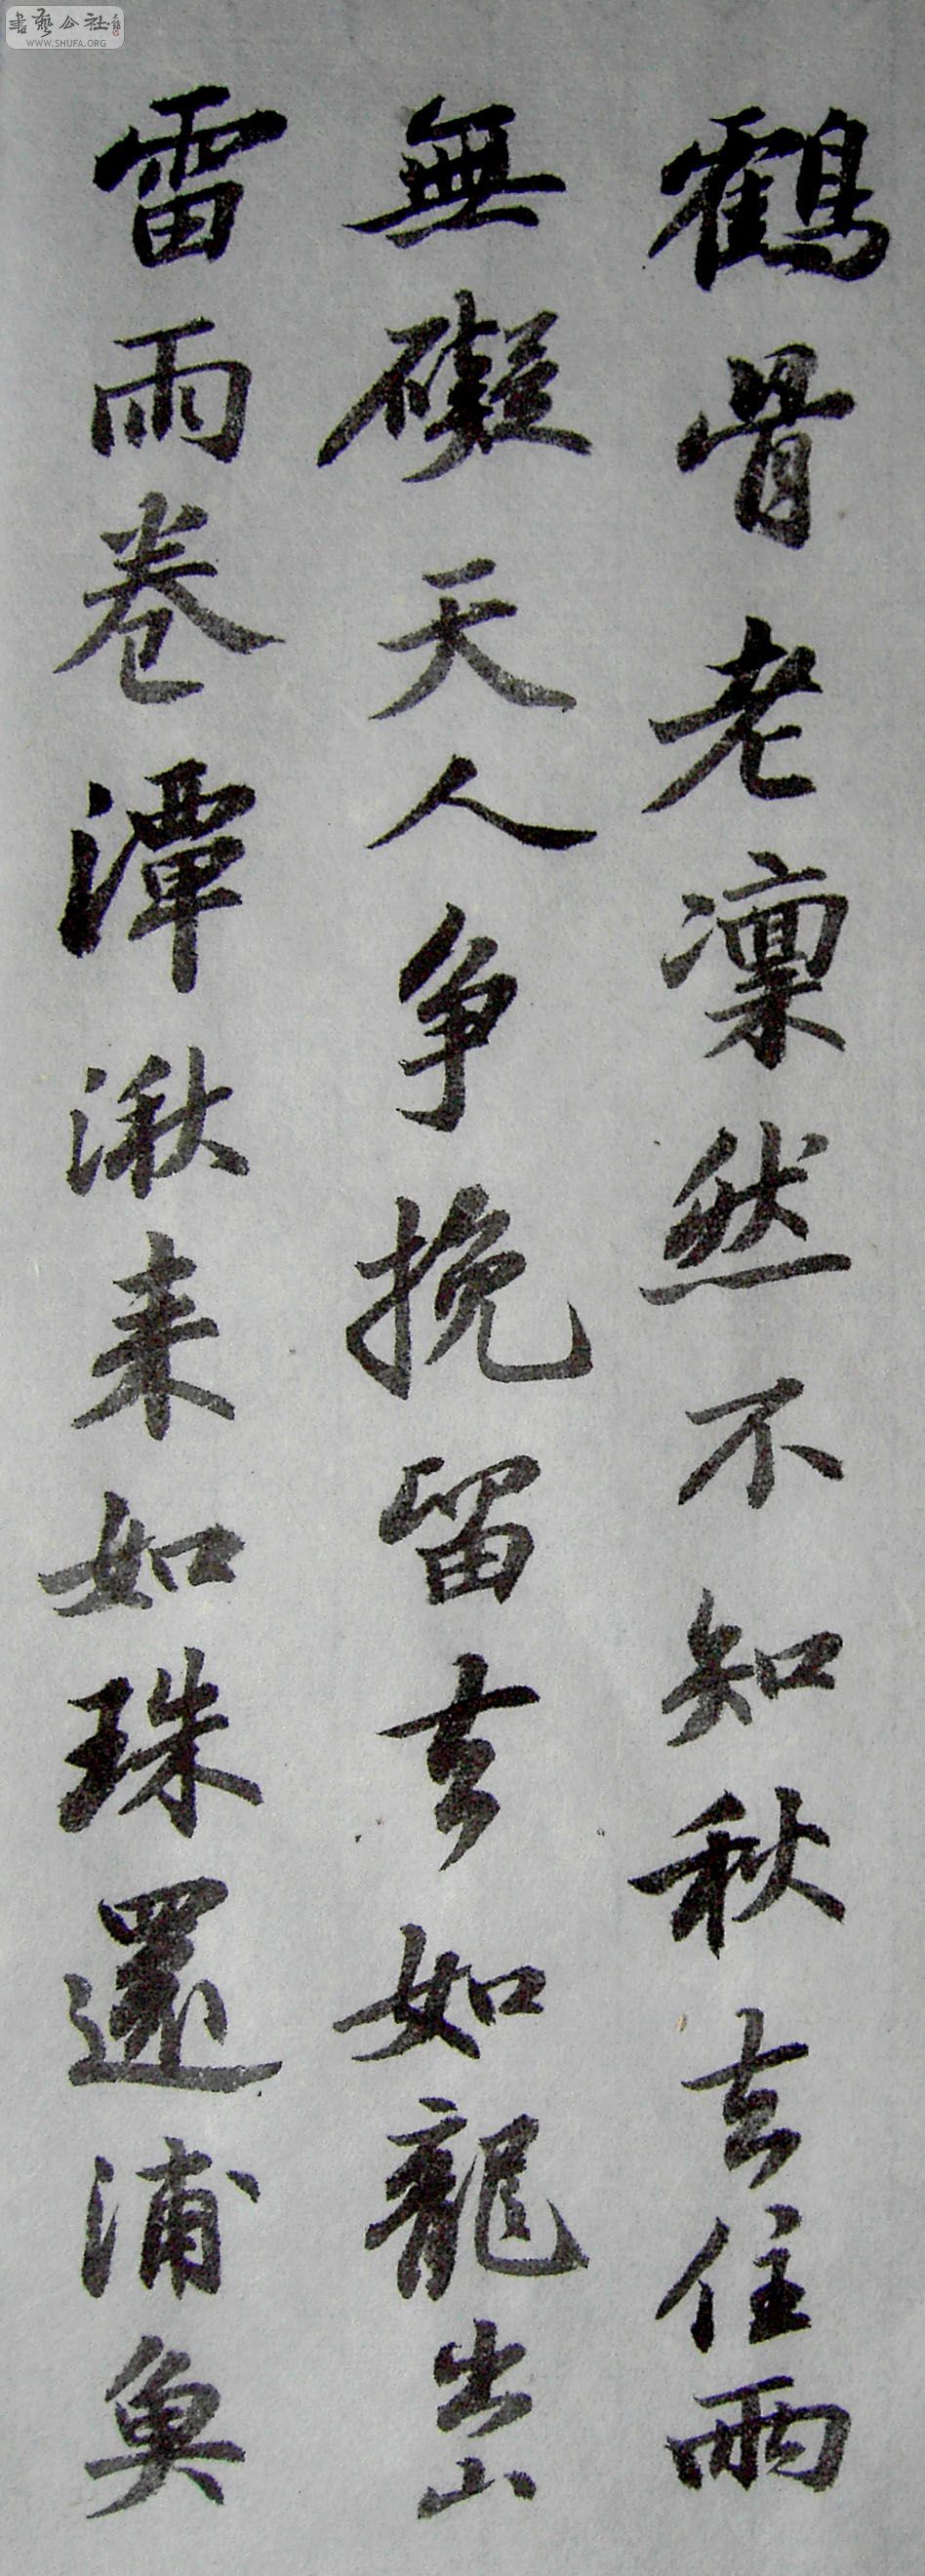 鶴骨老凛然不知秋去住兩
無礙天人争挽留去如龍出山
雷雨卷潭湫来如珠還浦魚
書藝公社
WWW.SHUFA.ORG